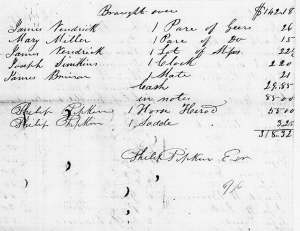 Brought over $142.18
James Kendrick 1 Pare of Gears 26
Mary Miller 1 Pare of Do 15
James Kendrick 1 Lot of
Joseph Simkins 1 Clock 220
James 1 Mate 21
Cash 29.55
in notes 85.00
Philip Pipkin 1 Horse 55.00
Philip Pipkin 1 Saddle 3.25
318.32
Philip Pipkin Exr